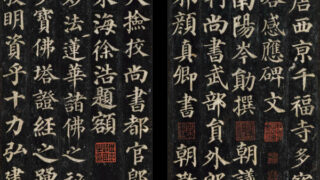 唐西京千福寺多寶
塔感應碑文
南陽岑勛撰 朝議
判尚書武部員外郎
邪顏真卿書 朝散
夫檢校尚書都官郎
東海徐浩題額
妙法蓮華諸佛之秘
寶佛塔證經之踴
發明資乎十力弘建